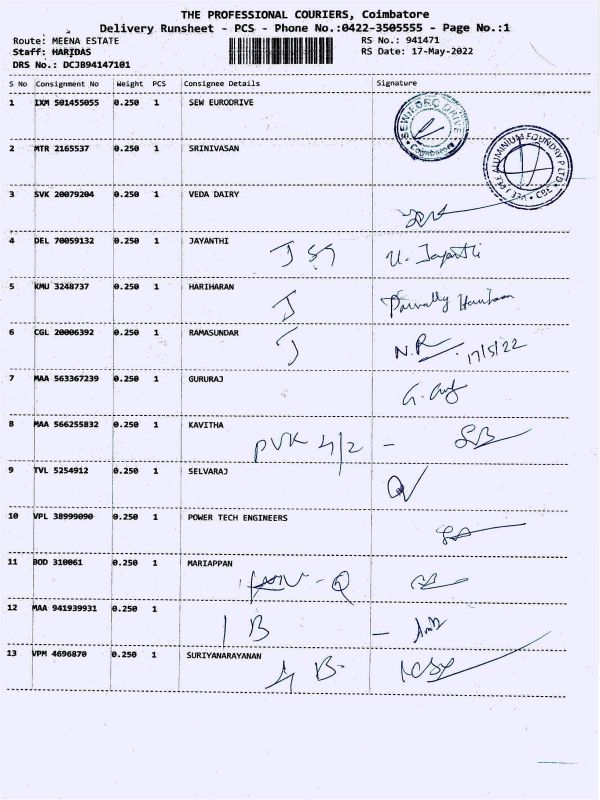 THE PROFESSIONAL COURIERS, Coimbatore
Delivery Runsheet - PCS - Phone No.:0422-3505555 - Page No.:1
Route: MEENA ESTATE RS No.: 941471
Staff: HARIDAS RS Date: 17-May-2022
DRS No.: DCJB94147101
S No Consignment No Weight PCS Consignee Details Signature
1 IXM 501455055 0.250 1 SEW EURODRIVE
2 MTR 2165537 0.250 1 SRINIVASAN
3 SVK 20079204 0.250 1 VEDA DAIRY
4 DEL 70059132 0.250 1 JAYANTHI U. Jayanthi
5 KMU 3248737 0.250 1 HARIHARAN J
6 CGL 20006392 0.250 1 RAMASUNDAR J N.R 17/5/22
7 MAA 563367239 0.250 1 GURURAJ
8 MAA 566255832 0.250 1 KAVITHA
PVK 4/2 -
9 TVL 5254912 0.250 1 SELVARAJ
10 VPL 38999090 0.250 1 POWER TECH ENGINEERS
11 BOD 310061 0.250 1 MARIAPPAN
12 MAA 941939931 0.250 1
1 B -
13 VPM 4696870 0.250 1 SURIYANARAYANAN
4 B-